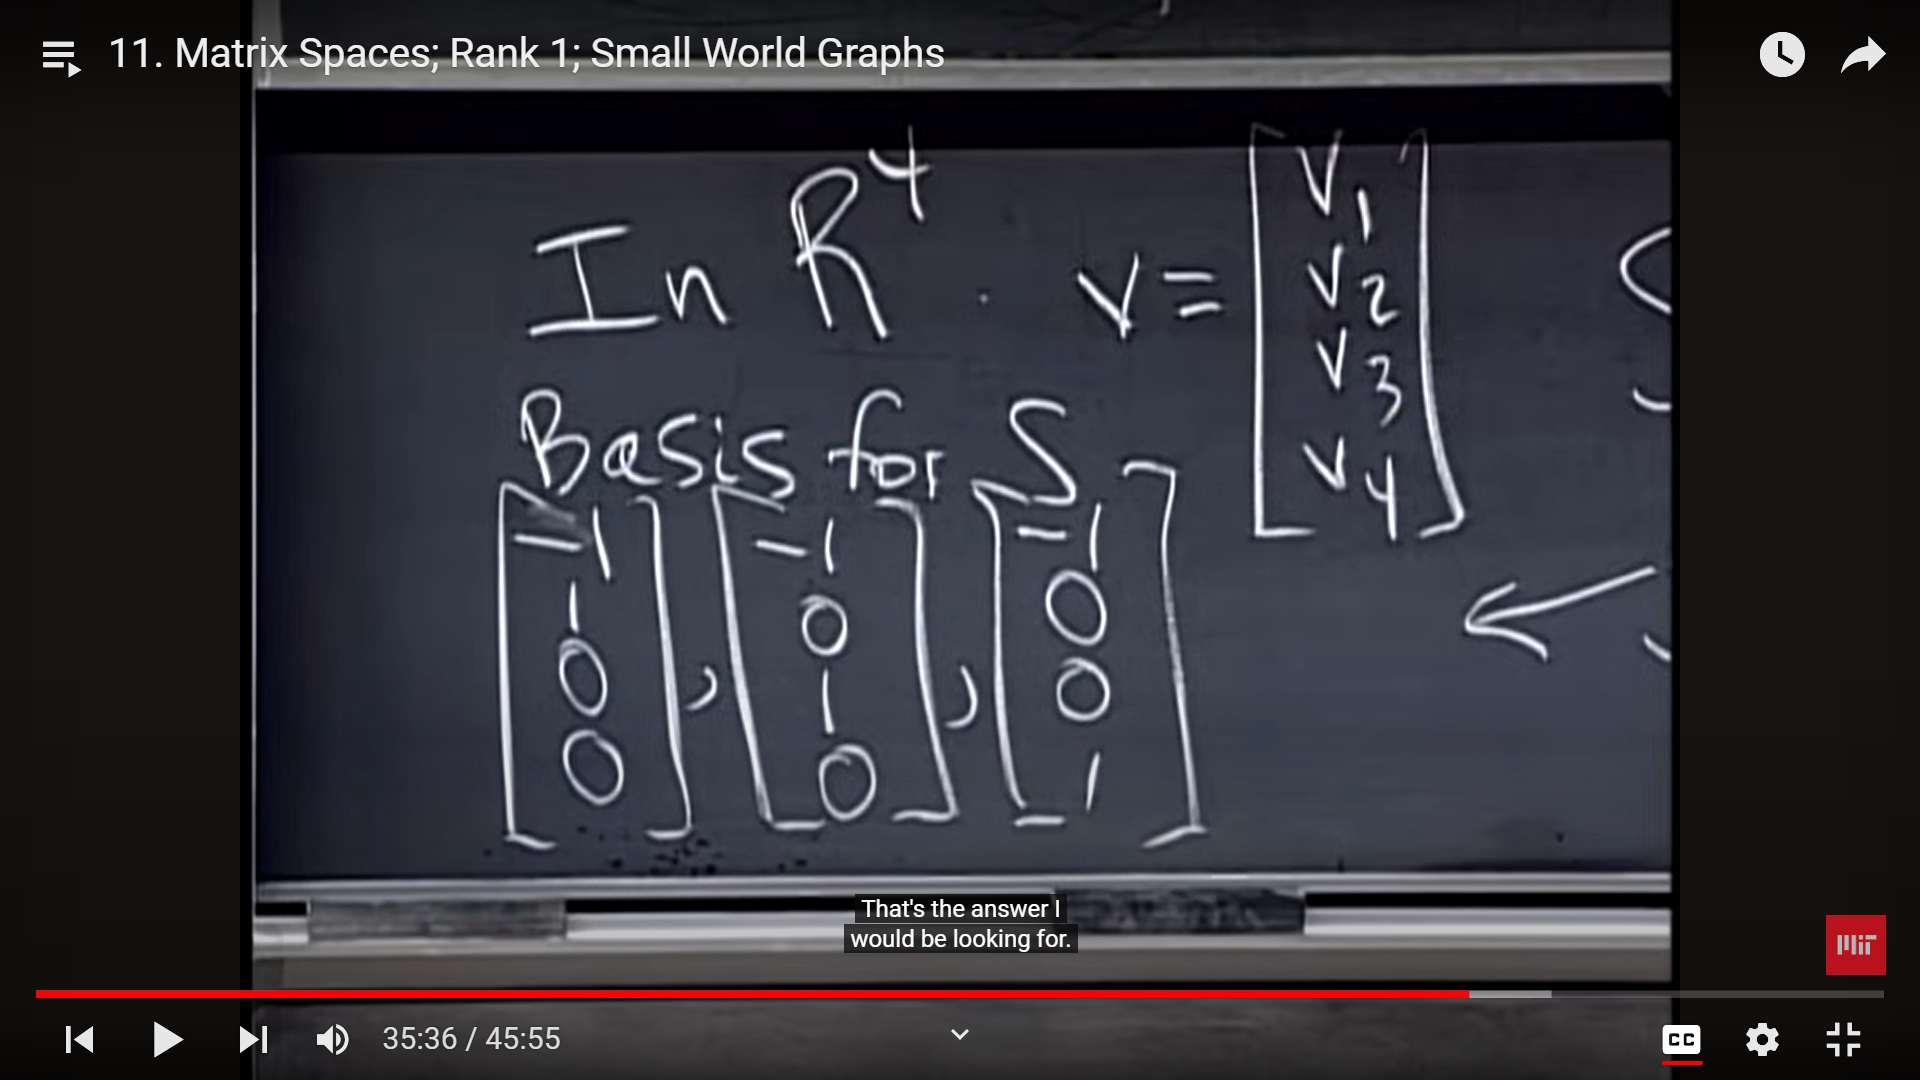 11. Matrix Spaces; Rank 1; Small World Graphs
In R⁴ . v = [v₁ v₂ v₃ v₄]
Basis for S
[-1 1 0 0], [-1 0 1 0], [-1 0 0 1]
That's the answer I
would be looking for.
MIT
35:36 / 45:55
CC